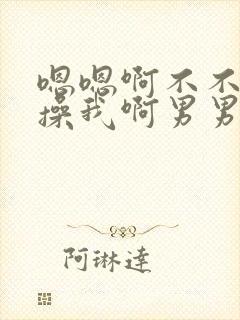 嗯嗯啊不不
操我啊男男
阿琳達